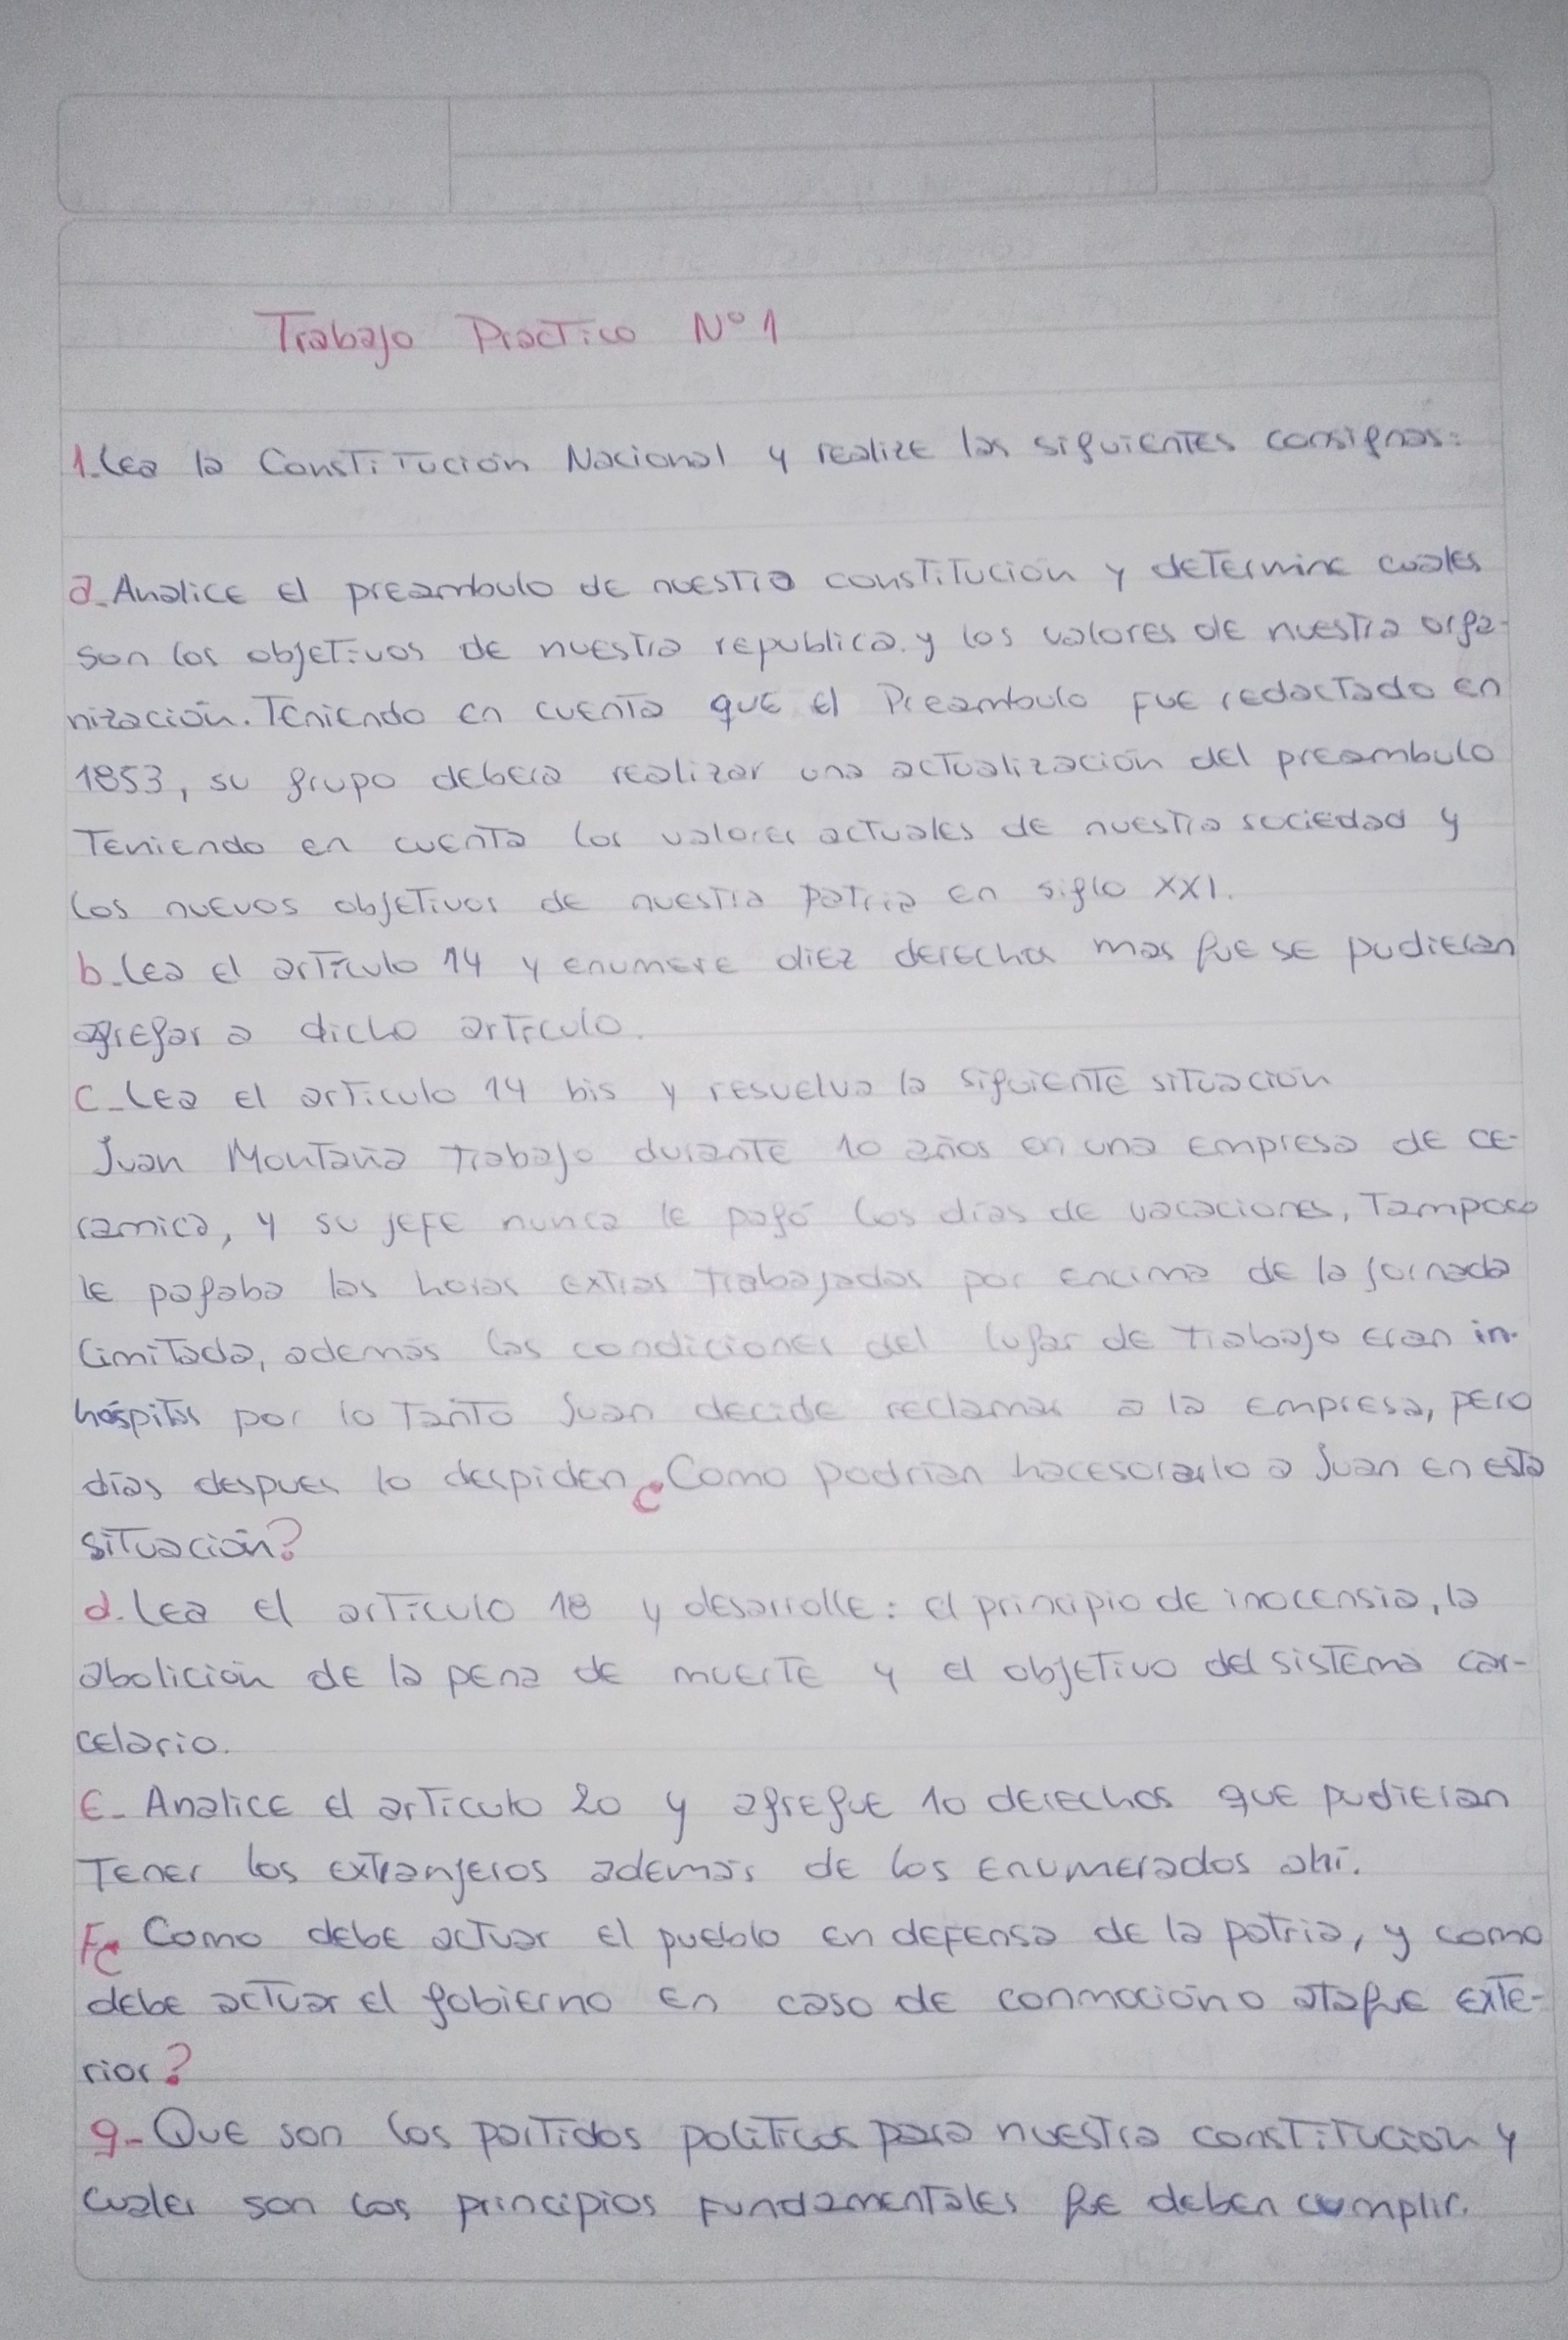 Trabajo Practico N° 1
1. Lea la Constitución Nacional y realize las siguientes consignas:
a. Analice el preambulo de nuestra constitución y determine cuales
son los objetivos de nuestra republica. y los valores de nuestra orga-
nización. Teniendo en cuenta que el Preambulo fue redactado en
1853, su grupo debera realizar una actualización del preambulo
Teniendo en cuenta los valores actuales de nuestra sociedad y
los nuevos objetivos de nuestra patria en siglo XXI.
b. Lea el artículo 14 y enumere diez derechos mas que se pudieran
agregar a dicho artículo.
c. Lea el artículo 14 bis y resuelva la siguiente situación
Juan Montaña trabajo durante 10 años en una empresa de ce-
ramica, y su jefe nunca le pagó los días de vacaciones, Tampoco
le pagaba las horas extras trabajadas por encima de la jornada
limitada, además las condiciones del lugar de trabajo eran in-
hóspitas por lo Tanto Juan decide reclamar a la empresa, pero
días despues lo despiden ¿Como podrían hacesorarlo a Juan en esta
situación?
d. Lea el artículo 18 y desarrolle: el principio de inocensia, la
abolición de la pena de muerte y el objetivo del sistema car-
celario.
e. Analice el artículo 20 y agregue 10 derechos que pudieran
Tener los extranjeros además de los enumerados ahí.
F ¿Como debe actuar el pueblo en defensa de la patria, y como
debe actuar el gobierno en caso de conmoción o ataque exte-
rior?
g- Que son los partidos politicos para nuestra constitucion y
cuales son los principios fundamentales que deben cumplir.